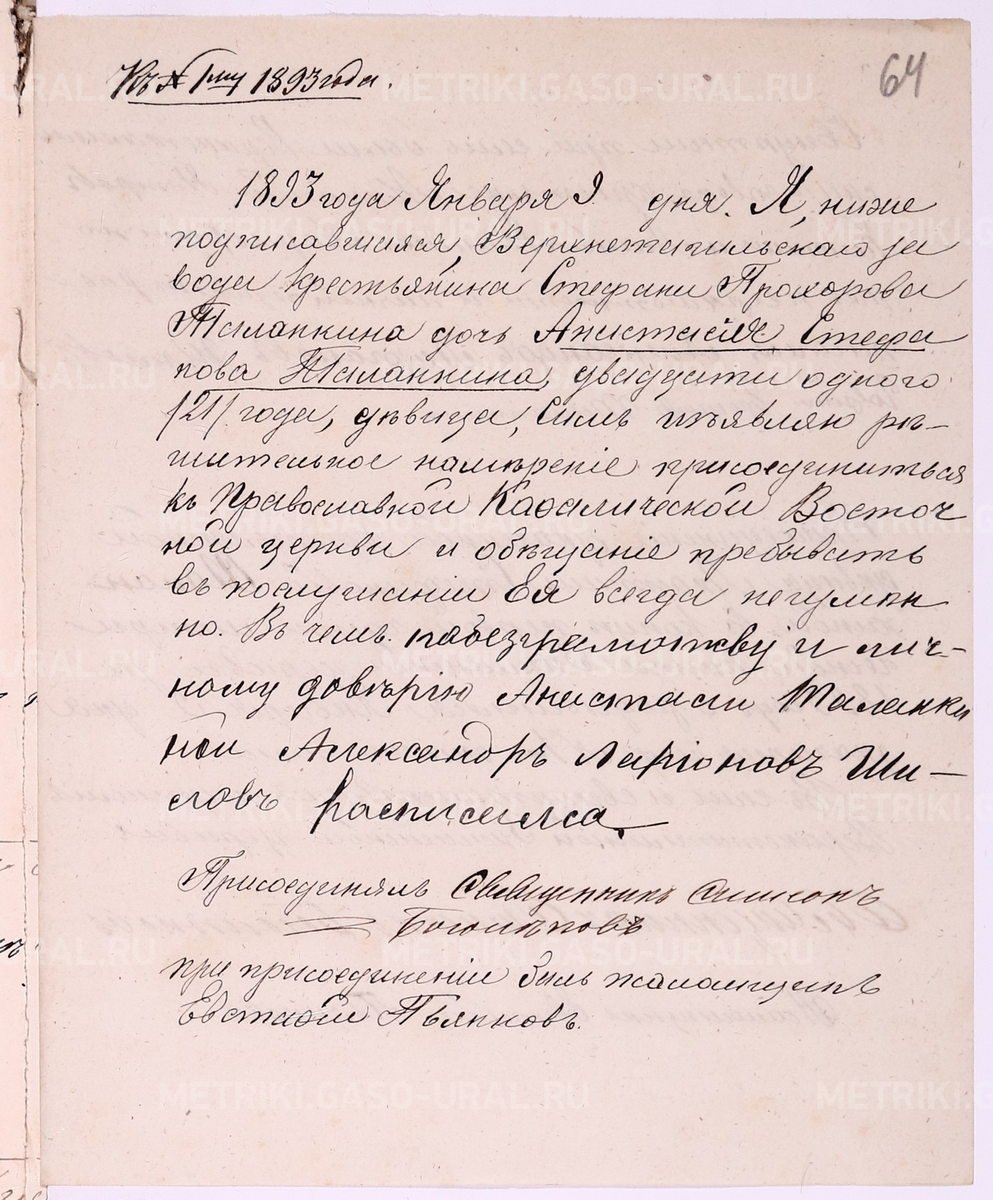 Къ № 1му 1893 года.
64
1893 года Января 9 дня. Я, ниже
подписавшаяся, Верхнетагильскаго за
вода крестьянина Стефана Прохорова
Таланкина дочь Анастасія Стефа
нова Таланкина, двадцати одного
/21/ года, дѣвица, симъ изъявляю рѣ-
шительное намѣреніе присоединиться
къ Православной Каѳолической Восточ
ной церкви и обѣщаніе пребывать
въ послушаніи Ея всегда неизмѣн
но. Въ чемъ по безграмотству и лич-
ному довѣрію Анастасіи Таланки
ной Александръ Ларіоновъ Ши-
ловъ росписался
Присоединялъ Священникъ Симеонъ
Боголѣповъ
при присоединеніи былъ псаломщикъ
Евстафій Пьянковъ.
METRIKI.GASO-URAL.RU